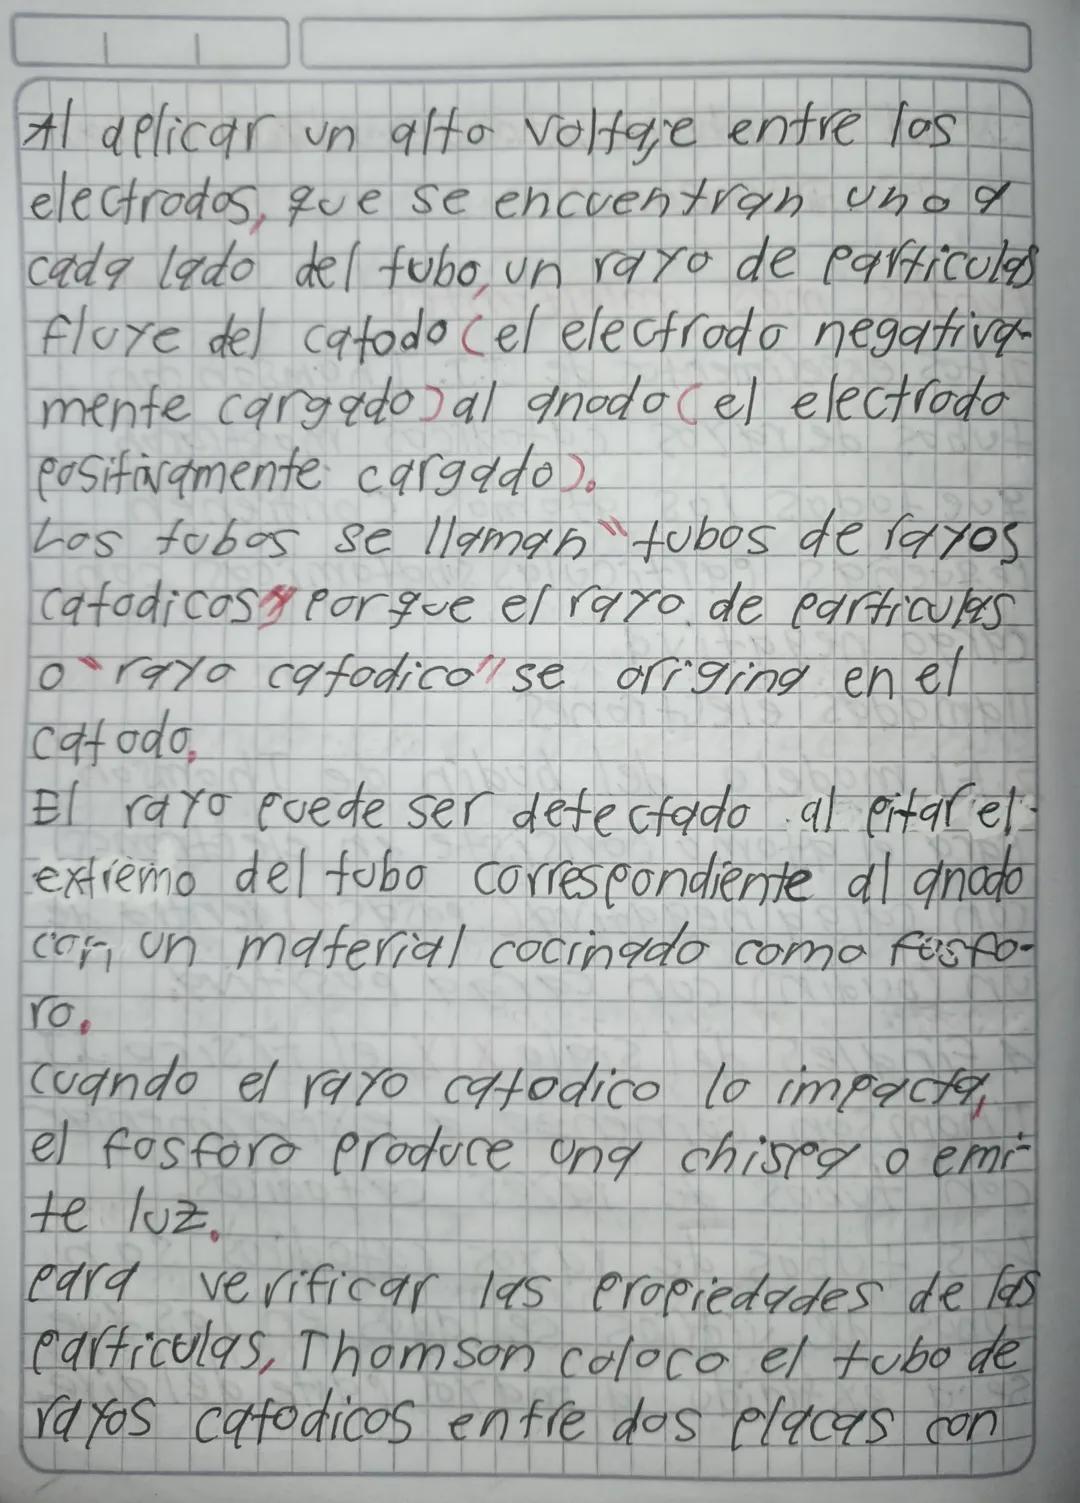 Al aplicar un alto voltaje entre los
electrodos, que se encuentran uno a
cada lado del tubo, un rayo de particulas
fluye del catodo (el electrodo negativa-
mente cargado) al anodo (el electrodo
positivamente cargado).
Los tubos se llaman "tubos de rayos
catodicos" porque el rayo de particulas
o "rayo catodico" se origina en el
catodo.
El rayo puede ser detectado al pitar el
extremo del tubo correspondiente al anodo
con un material cocinado como fosfo-
ro.
cuando el rayo catodico lo impacta,
el fosforo produce una chispa o emi-
te luz.
para verificar las propiedades de las
particulas, Thomson coloco el tubo de
rayos catodicos entre dos placas con